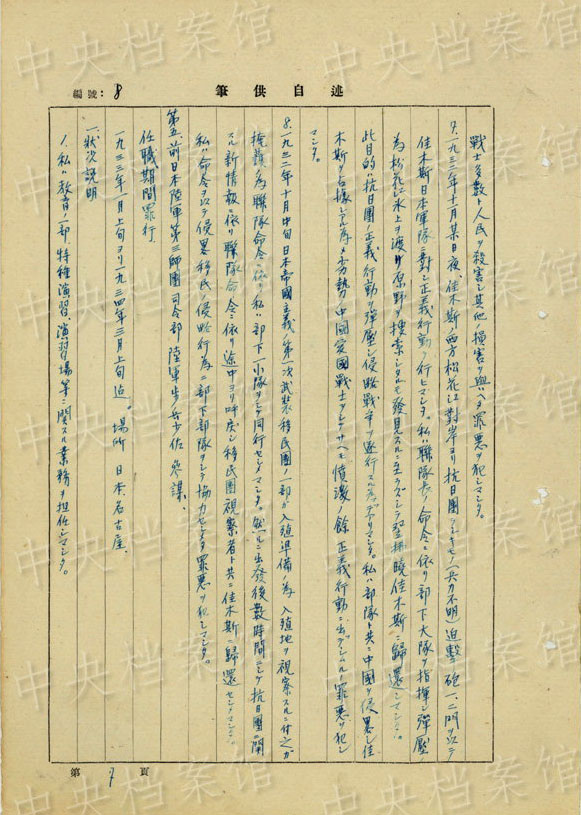 編號：8
述自供筆
戰士多數ト人民ヲ殺害シ其他ノ損害ヲ與ヘタ罪惡ヲ犯シマシタ。
7.一九三二年十一月某日夜、佳木斯ノ西方松花江対岸ヨリ抗日團ラシキモノ(兵力不明)迫擊砲一、二門ヲ以テ
佳木斯日本軍隊ニ對シ正義行動ヲ行ヒマシタ。私ハ聯隊長ノ命令ニ依リ部下大隊ヲ指揮シ彈壓
為松花江氷上ヲ渡リ原野ヲ搜索シタルモ發見スルニ至ラズシテ翌拂曉佳木斯ニ歸還シマシタ。
此目的ハ抗日團ノ正義行動ヲ彈壓シ侵略戰爭ヲ遂行スル為デアリマシタ。私ハ部隊ト共ニ中國ヲ侵畧シ佳
木斯ヲ占據シ為メニ劣勢ノ中國愛國戰士ヲシテサヘモ憤激ノ餘正義行動ニ出デシムルノ罪惡ヲ犯シ
マシタ。
8.一九三二年十月中旬日本帝國主義ノ第一次武裝移民團ノ一部ガ入殖準備ノ為入殖地ヲ視察スルニ付之ガ
掩護ノ為聯隊命令ニ依リ私ハ部下一小隊ヲシテ同行セシメマシタ。然ルニ出發後數時間ニシテ抗日團ニ関
スル新情報ニ依リ聯隊命令ニ依リ途中ヨリ呼戾シ移民團視察者ト共ニ佳木斯ニ歸還セシメマシタ。
私ハ命令ヲ以テ侵畧移民ノ侵略行為ニ部下部隊ヲシテ協力セシメタ罪惡ヲ犯シマシタ。
第五、前日本陸軍第三師團司令部陸軍步兵少佐參謀、
任職期間罪行
一九三三年一月上旬ヨリ一九三四年三月上旬迄。場所日本名古屋、
一、狀況説明
1.私ハ教育ノ一部特種演習、演習場等ニ関スル業務ヲ担任シマシタ。
第7頁
中央档案馆